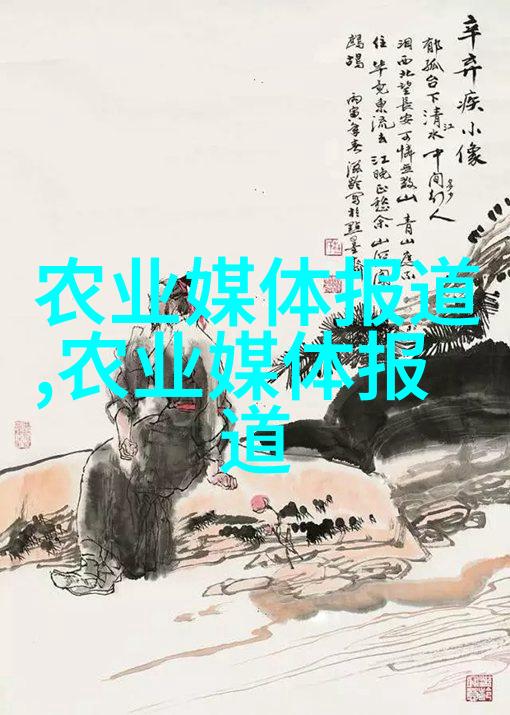 辛弃疾小像
郁孤台下清水中间多少
行人
泪西北望长安可怜无数山青山遮不
住毕竟东流去江晚正愁余山深闻
鹧鸪丙寅年春
江
农业媒体报道
,农业媒体报
道